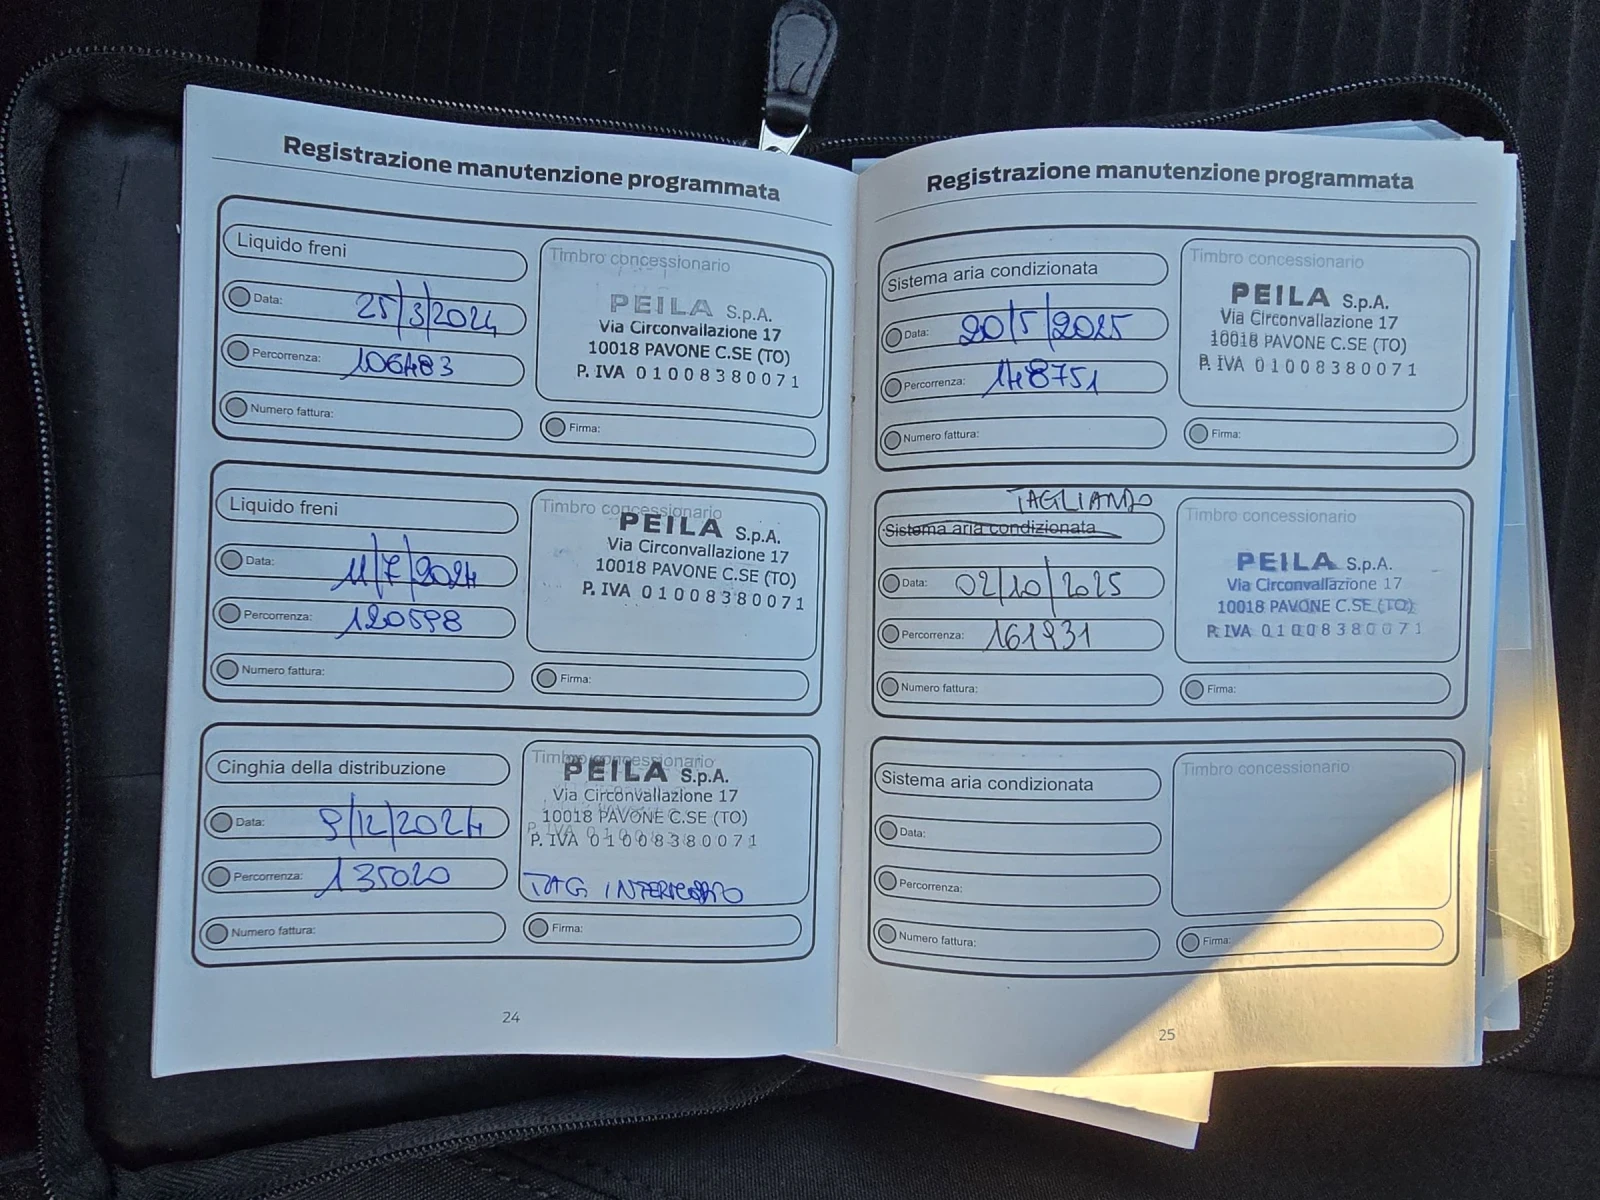 Registrazione manutenzione programmata
Liquido freni
Data: 25/3/2024
Percorrenza: 106483
Numero fattura:
Timbro concessionario
PEILA S.p.A.
Via Circonvallazione 17
10018 PAVONE C.SE (TO)
P. IVA 01008380071
Firma:
Liquido freni
Data: 11/7/2024
Percorrenza: 120598
Numero fattura:
Timbro concessionario
PEILA S.p.A.
Via Circonvallazione 17
10018 PAVONE C.SE (TO)
P. IVA 01008380071
Firma:
Cinghia della distribuzione
Data: 9/12/2024
Percorrenza: 135020
Numero fattura:
Timbro concessionario
PEILA S.p.A.
Via Circonvallazione 17
10018 PAVONE C.SE (TO)
P. IVA 01008380071
TAG.
Firma:
24
Registrazione manutenzione programmata
Sistema aria condizionata
Data: 20/5/2025
Percorrenza: 148751
Numero fattura:
Timbro concessionario
PEILA S.p.A.
Via Circonvallazione 17
10018 PAVONE C.SE (TO)
P. IVA 01008380071
Firma:
TAGLIANDO
Sistema aria condizionata
Data: 02/10/2025
Percorrenza: 161931
Numero fattura:
Timbro concessionario
PEILA S.p.A.
Via Circonvallazione 17
10018 PAVONE C.SE (TO)
P. IVA 01008380071
Firma:
Sistema aria condizionata
Data:
Percorrenza:
Numero fattura:
Timbro concessionario
Firma:
25